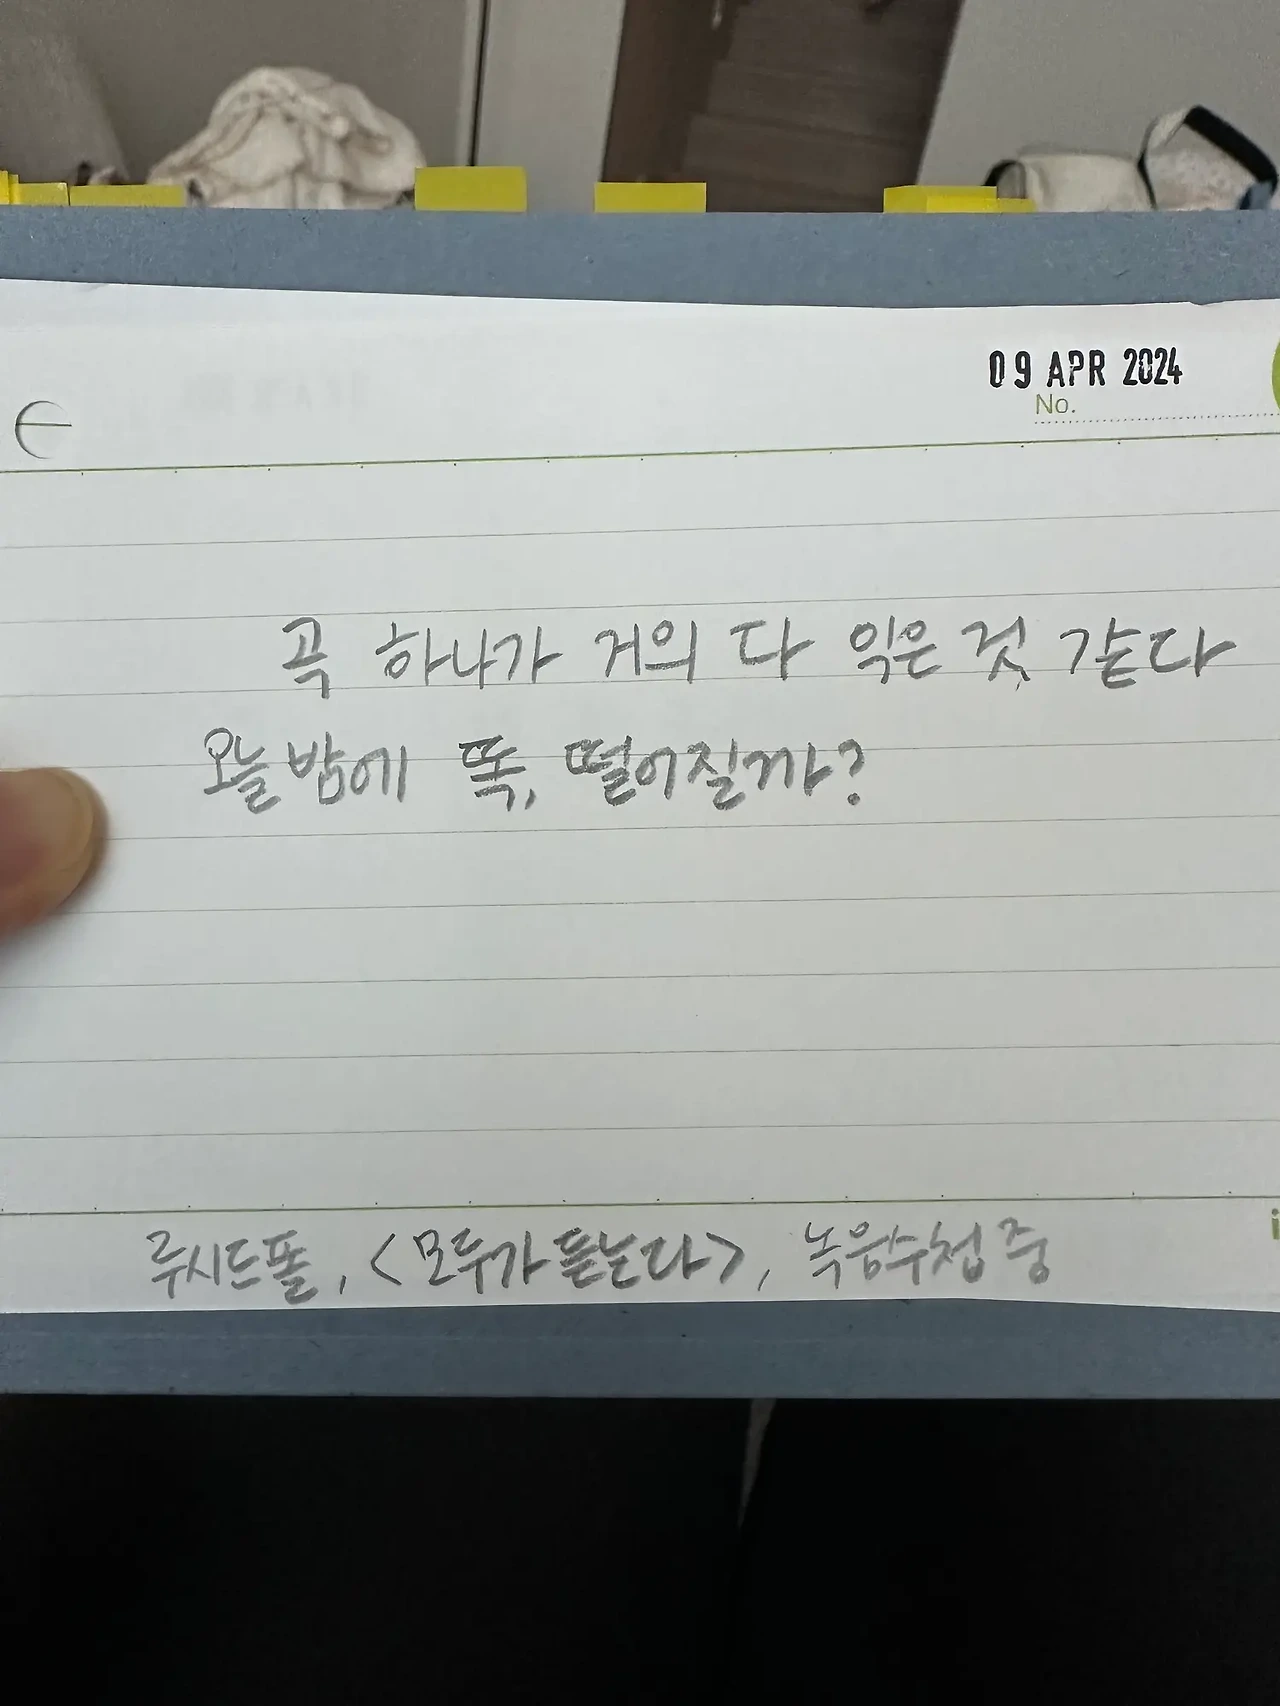 09 APR 2024
No.
곡 하나가 거의 다 익은 것 같다
오늘 밤에 똑, 떨어질까?
루시드폴, <모두가 듣는다>, 녹음수첩 중